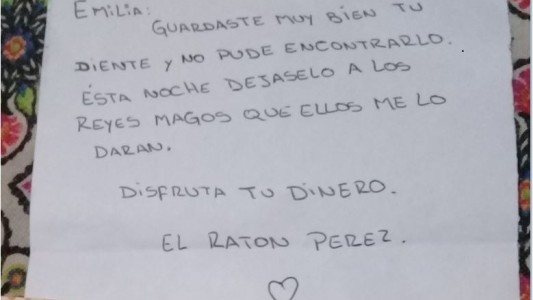 EMiLiA:
GUARDASTE MUY BIEN TU
DiENTE Y NO PUDE ENCONTRARLO.
ÉSTA NOCHE DEJASELO A LOS
REYES MAGOS QUE ELLOS ME LO
DARAN.
DiSFRUTA TU DiNERO.
EL RATON PEREZ.
♡